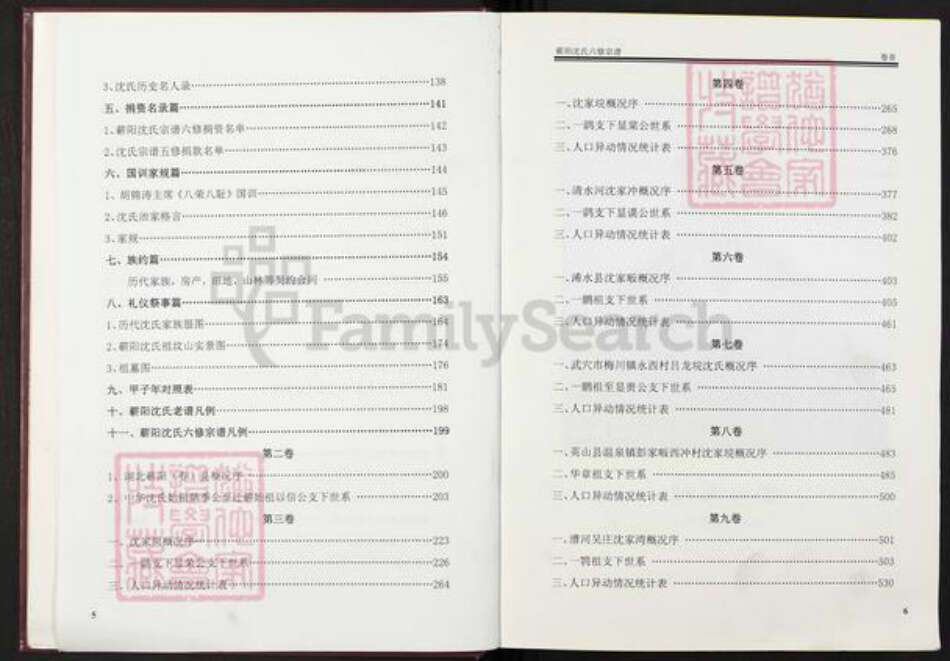 3、沈氏历史名人录……138
五、捐资名录篇……141
1、蕲阳沈氏宗谱六修捐资名单……142
2、沈氏宗谱五修捐款名单……143
六、国训家规篇……144
1、胡锦涛主席《八荣八耻》国训……145
2、沈氏治家格言……146
3、家规……151
七、族约篇……154
历代家族，房产，田地，山林等契约合同……155
八、礼仪祭事篇……163
1、历代沈氏家族服图……164
2、蕲阳沈氏祖坟山实景图……174
3、祖墓图……176
九、甲子年对照表……181
十、蕲阳沈氏老谱凡例……198
十一、蕲阳沈氏六修宗谱凡例……199
第二卷
1、湖北蕲阳（春）县概况序……200
2、中华沈氏始祖聃季公至迁蕲始祖以信公支下世系……203
第三卷
一、沈家 概况序……223
二、一鹍支下显荣公支下世系……226
三、人口异动情况统计表……264
5
蕲阳沈氏六修宗谱
卷首
第四卷
一、沈家垸概况序……265
二、一鹍支下显棠公世系……268
三、人口异动情况统计表……376
第五卷
一、清水河沈家冲概况序……377
二、一鹍支下显谟公世系……382
三、人口异动情况统计表……402
第六卷
一、浠水县沈家畈概况序……403
二、一鹏祖支下世系……405
三、人口异动情况统计表……461
第七卷
一、武穴市梅川镇永西村吕龙垸沈氏概况序……463
二、一鹏祖至显贵公支下世系……465
三、人口异动情况统计表……481
第八卷
一、英山县温泉镇彭家畈西冲村沈家垸概况序……483
二、华章祖支下世系……485
三、人口异动情况统计表……500
第九卷
一、漕河吴庄沈家湾概况序……501
二、一鹗祖支下世系……503
三、人口异动情况统计表……530
6
FamilySearch